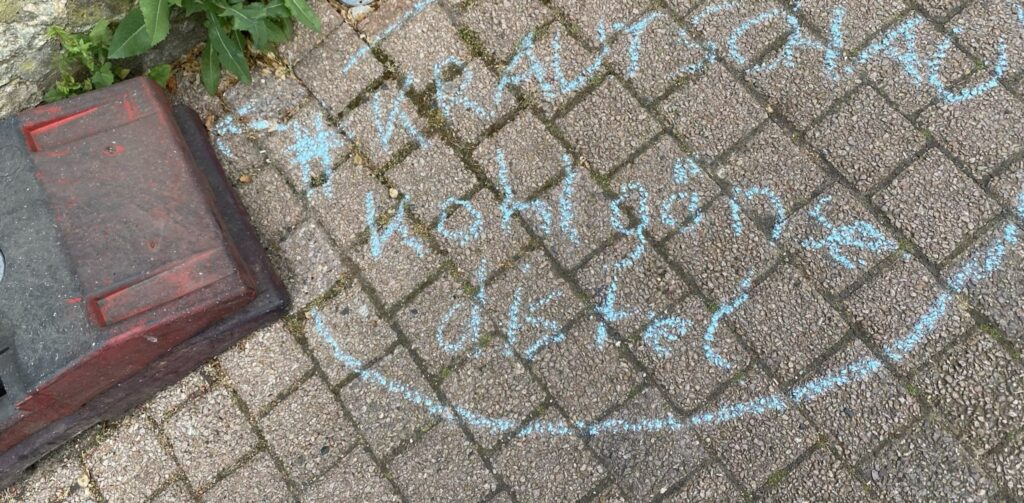 #KRAUTSCHAU
Kohlgänse
distel